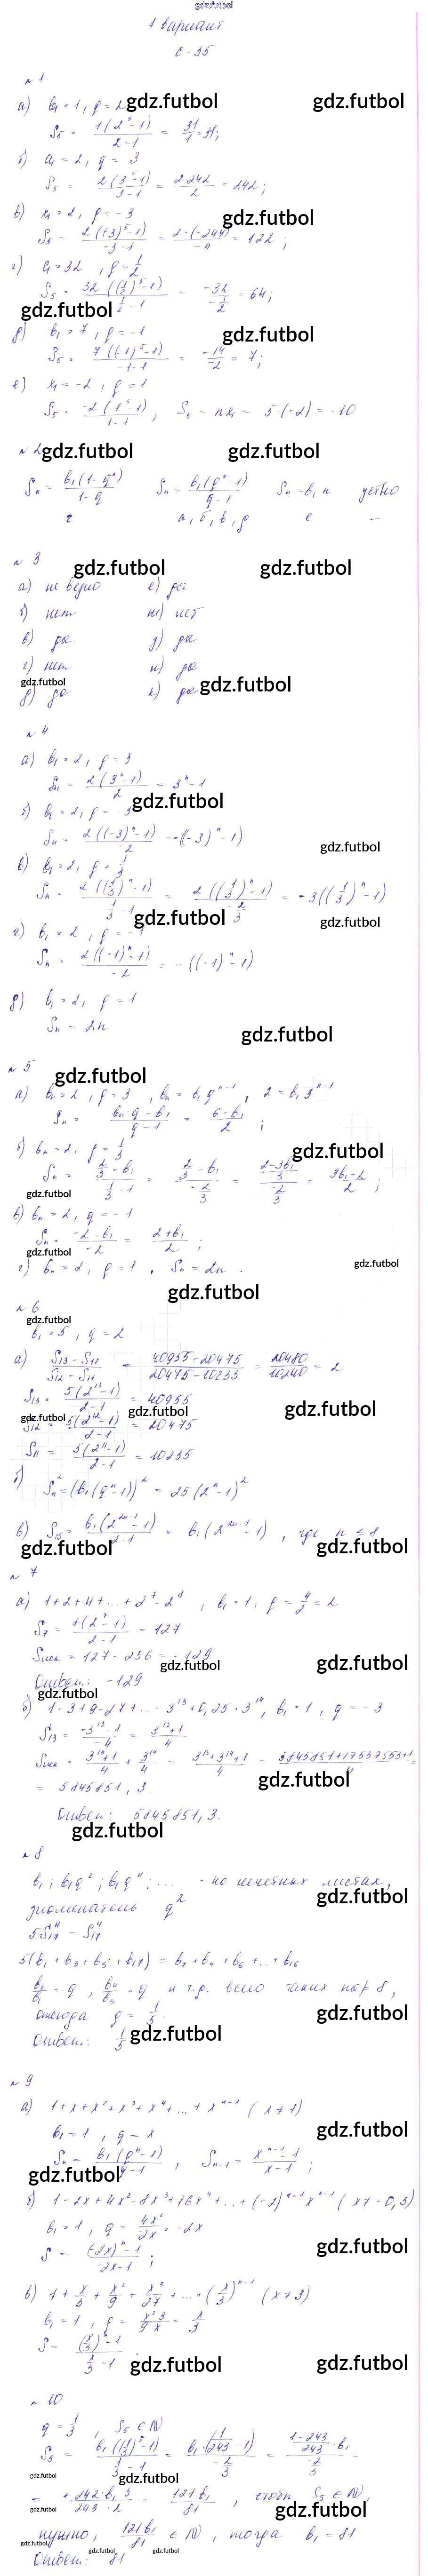 gdz.futbol
1 вариант
С-35
№1
а) b₁ = 1, q = 2 gdz.futbol gdz.futbol
S₅ = 1(2⁵-1)/2-1 = 31/1 = 31;
б) a₁ = 2, q = 3
S₅ = 2(3⁵-1)/3-1 = 2·242/2 = 242;
в) x₁ = 2, q = -3 gdz.futbol
S₅ = 2((-3)⁵-1)/-3-1 = 2·(-244)/-4 = 122;
г) = 32, q = 1/2
S₅ = 32((1/2)⁵-1)/1/2-1 = -32/-1/2 = 64;
gdz.futbol
д) b₁ = 7, q = -1 gdz.futbol
S₅ = 7((-1)⁵-1)/-1-1 = -14/-2 = 7;
е) x₁ = -2, q = 1
S₅ = -2(1⁵-1)/1-1, S₅ = nx₁ = 5·(-2) = -10
№2 gdz.futbol gdz.futbol
Sₙ = b₁(1-qⁿ)/1-q Sₙ = b₁(qⁿ-1)/q-1 Sₙ = b₁n устно
г а, б, в, д е –
№3 gdz.futbol gdz.futbol
а) не верно е) да
б) нет ж) нет
в) да з) да
г) нет и) да
gdz.futbol gdz.futbol
д) да к) да
№4
а) b₁ = 2, q = 3
Sₙ = 2(3ⁿ-1)/2 = 3ⁿ-1
б) b₁ = 2, q = -3 gdz.futbol
Sₙ = 2((-3)ⁿ-1)/-2 = -((-3)ⁿ-1)
gdz.futbol
в) b₁ = 2, q = 1/3
Sₙ = 2((1/3)ⁿ-1)/1/3-1 = 2((1/3)ⁿ-1)/-2/3 = -3((1/3)ⁿ-1)
gdz.futbol gdz.futbol
г) b₁ = 2, q = -1
Sₙ = 2((-1)ⁿ-1)/-2 = -((-1)ⁿ-1)
д) b₁ = 2, q = 1
Sₙ = 2n
gdz.futbol
№5 gdz.futbol
а) bₙ = 2, q = 3, bₙ = b₁qⁿ⁻¹, 2 = b₁3ⁿ⁻¹
Sₙ = bₙ·q-b₁/q-1 = 6-b₁/2;
б) bₙ = 2, q = 1/3 gdz.futbol
Sₙ = 2/3-b₁/1/3-1 = 2/3-b₁/-2/3 = 2-3b₁/3/-2/3 = 3b₁-2/2;
gdz.futbol
в) bₙ = 2, q = -1
Sₙ = -2-b₁/-2 = 2+b₁/2;
gdz.futbol gdz.futbol
г) bₙ = 2, q = 1, Sₙ = 2n.
gdz.futbol
№6
gdz.futbol
b₁ = 5, q = 2
а) S₁₃-S₁₂/S₁₂-S₁₁ = 40955-20475/20475-10235 = 20480/10240 = 2
S₁₃ = 5(2¹³-1)/2-1 = 40955
gdz.futbol gdz.futbol gdz.futbol
S₁₂ = 5(2¹²-1)/2-1 = 20475
S₁₁ = 5(2¹¹-1)/2-1 = 10235
б) Sₙ² = (b₁(qⁿ-1))² = 25(2ⁿ-1)²
в) = b₁(2²ⁿ⁻¹-1)/2-1 = b₁(2²ⁿ⁻¹-1), где n ≤ 8
gdz.futbol gdz.futbol
№7
а) 1+2+4+...+2⁷-2⁸, b₁ = 1, q = 4/2 = 2
S₇ = 1(2⁷-1)/2-1 = 127
Sиск = 127-256 = -129
gdz.futbol gdz.futbol
Ответ: -129
gdz.futbol
б) 1-3+9-27+...-3¹³+0,25·3¹⁴, b₁ = 1, q = -3
S₁₃ = -3¹³-1/-4 = 3¹³+1/4
Sиск = 3¹³+1/4 + 3¹⁴/4 = 3¹³+3¹⁴+1/4 =
= 5845851,3. gdz.futbol
Ответ: 5845851,3.
gdz.futbol
№8
b₁; b₁q²; b₁q⁴; ... - на нечетных местах,
gdz.futbol
знаменатель q²
5S₁₇ = S₁₇
5(b₁+b₃+b₅+b₁₇) = b₂+b₄+b₆+...+b₁₆
b₂/b₁ = q, b₄/b₃ = q и т.д. всего таких пар 8,
отсюда q = 1/5 gdz.futbol
Ответ: 1/5 gdz.futbol
№9
а) 1+x+x²+x³+x⁴+...+xⁿ⁻¹ (x≠1)
b₁ = 1, q = x gdz.futbol
Sₙ = b₁(qⁿ-1)/q-1, Sₙ₋₁ = xⁿ⁻¹-1/x-1;
gdz.futbol
б) 1-2x+4x²-8x³+16x⁴+...+(-2)ⁿ⁻¹xⁿ⁻¹ (x≠-0,5)
b₁ = 1, q = 4x²/2x = -2x
gdz.futbol
S = (-2x)ⁿ-1/-2x-1;
в) 1+x/3+x²/9+x³/27+...+(x/3)ⁿ⁻¹ (x≠3)
b₁ = 1, q = x²3/9x = x/3
S = (x/3)ⁿ-1/x/3-1.
gdz.futbol gdz.futbol
№10
q = 1/3, S₅ ∈ N
S₅ = b₁((1/3)⁵-1)/1/3-1 = b₁·(1/243-1)/-2/3 = 1-243/243·b₁/-2/3 =
gdz.futbol gdz.futbol
= +242·b₁·3/243·2 = 121b₁/81, чтобы S₅ ∈ N,
gdz.futbol gdz.futbol
нужно, 121b₁/81 ∈ N, тогда b₁ = 81
gdz.futbol gdz.futbol gdz.futbol
Ответ: 81